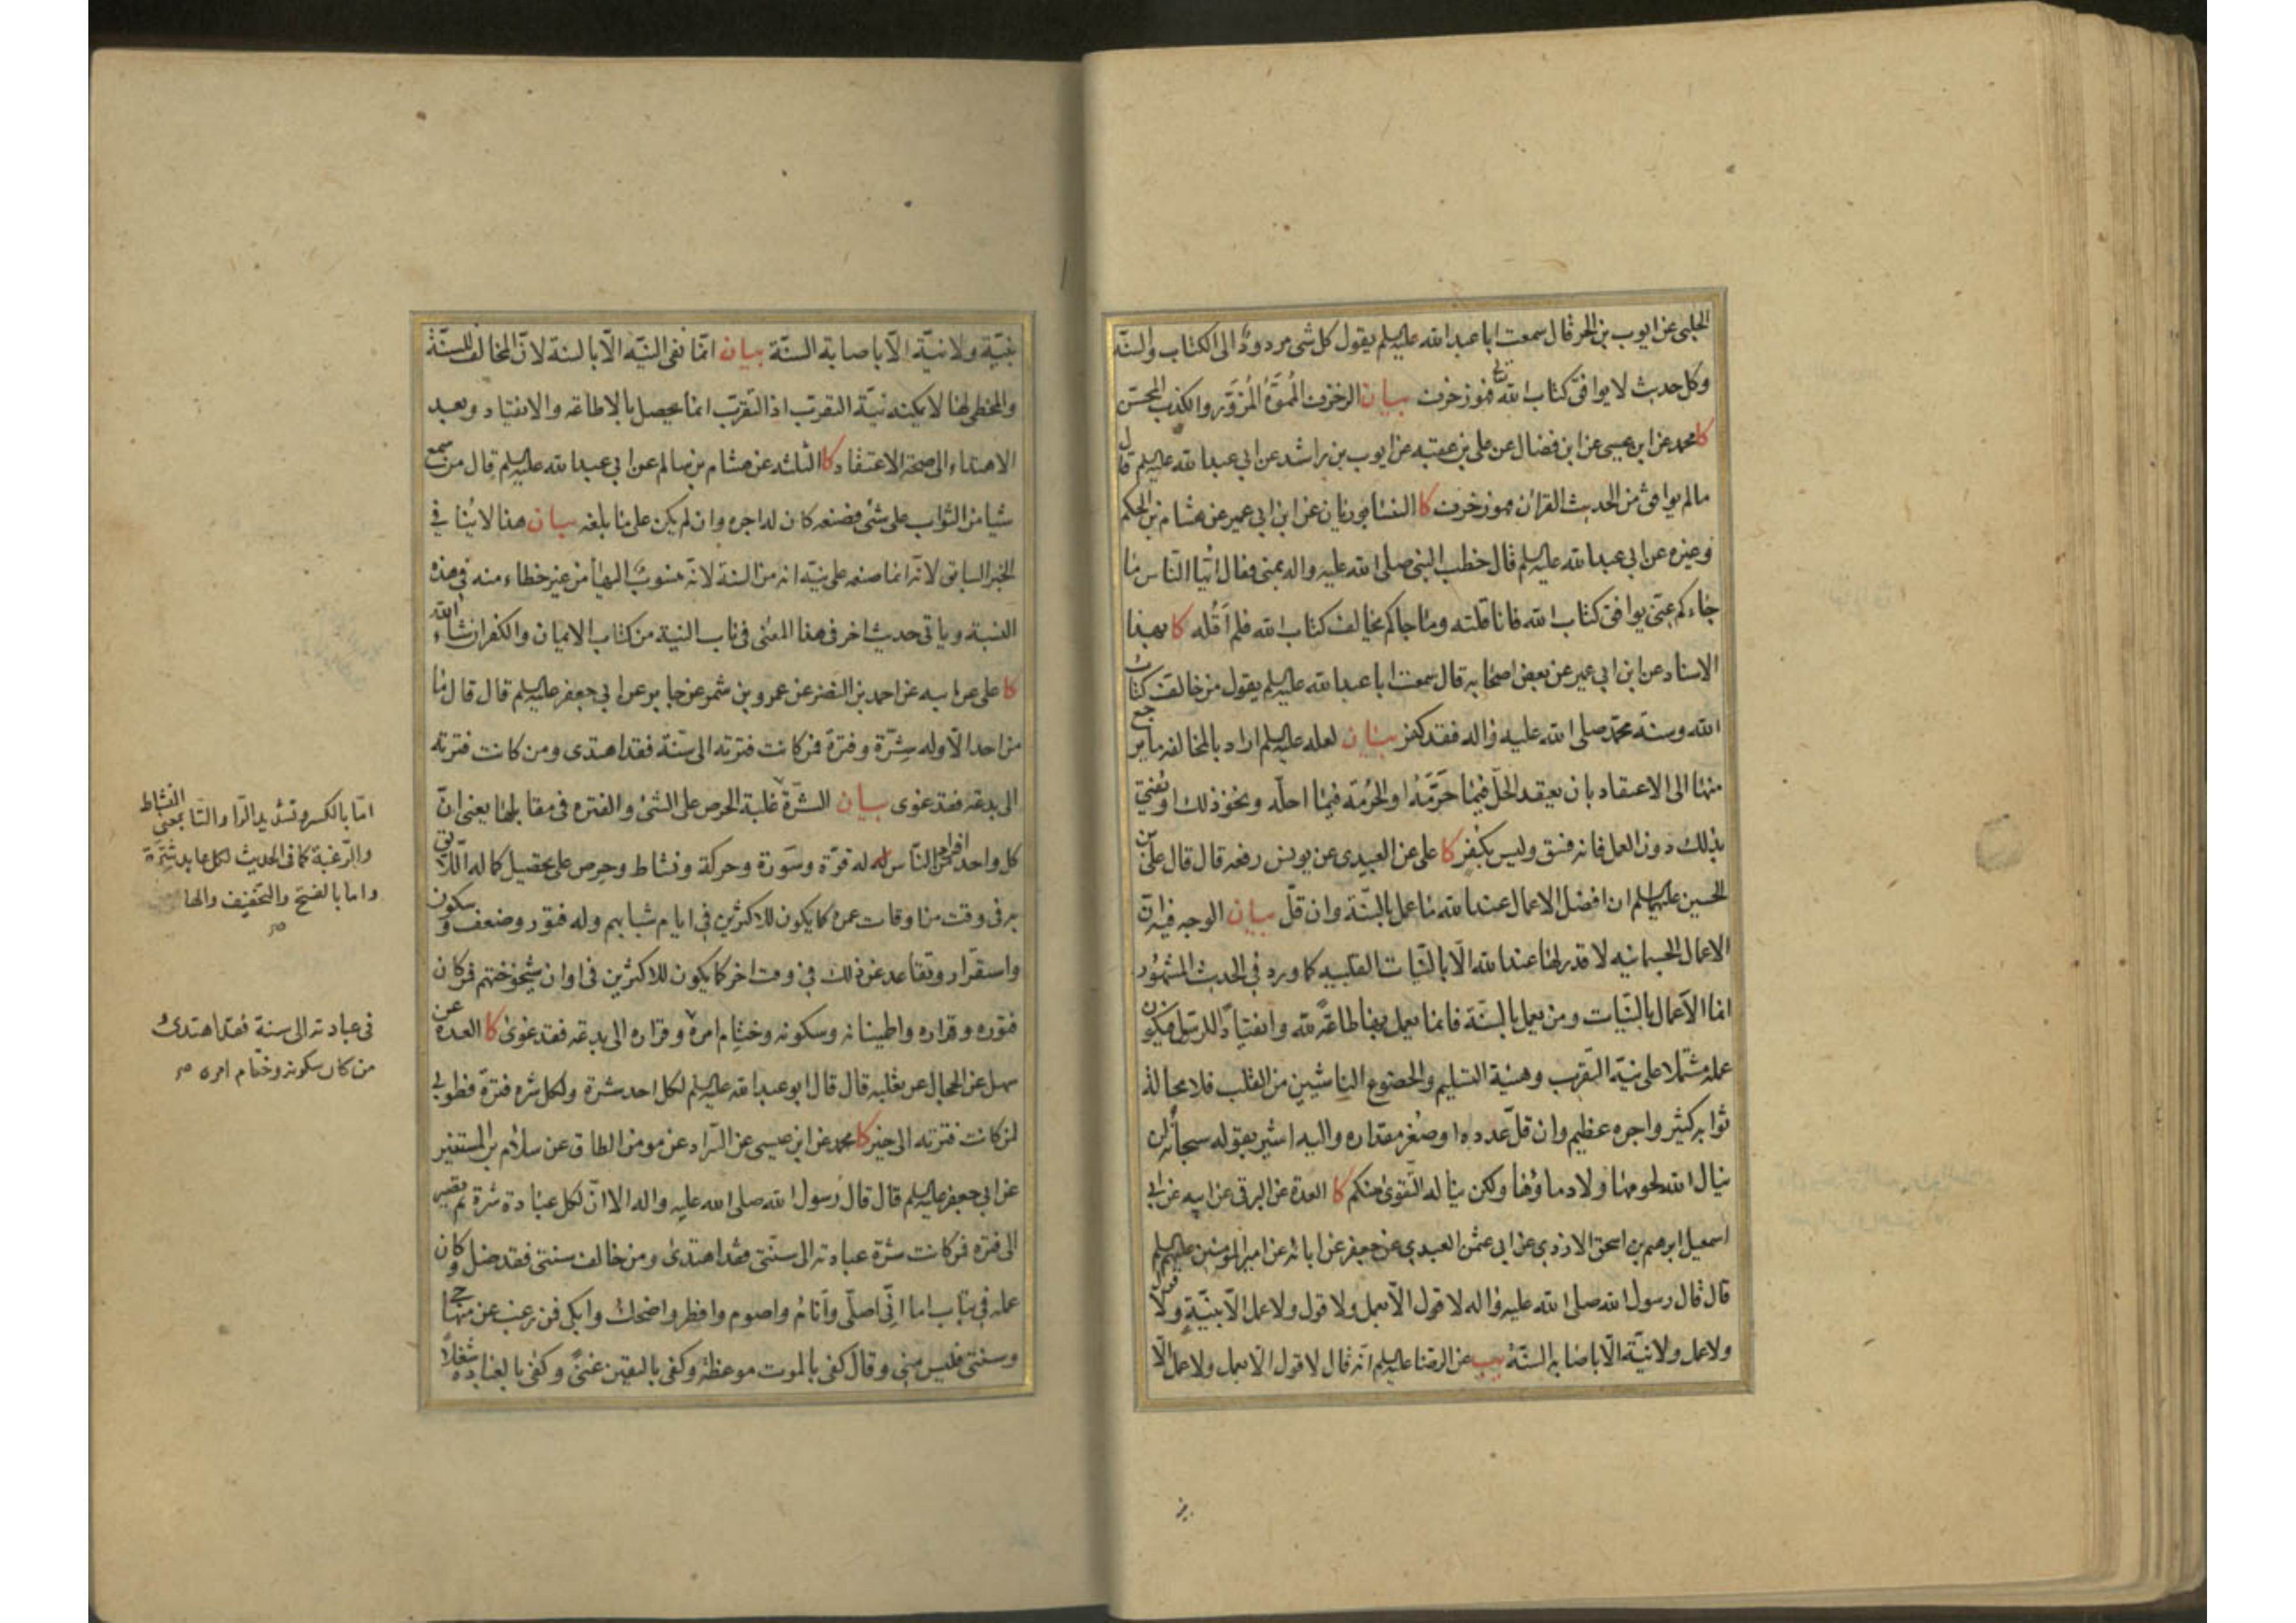 الحلبي عن ايوب بن الحر قال سمعت ابا عبد الله عليه السلم يقول كل شئ مردود الى الكتاب والسنة
وكل حديث لا يوافق كتاب الله فهو زخرف بيان الزخرف المموّه المزوّر والكذب المحسّن
كا محمد عن ابن عيسى عن ابن فضال عن علي بن عقبه عن ايوب بن راشد عن ابي عبد الله عليه السلم قال
مالم يوافق من الحديث القرآن فهو زخرف كا النيسابوريان عن ابن ابي عمير عن هشام بن الحكم
وغيره عن ابي عبد الله عليه السلم قال خطب النبي صلى الله عليه واله بمنى فقال ايها الناس ما
جاءكم عني يوافق كتاب الله فانا قلته وما جاكم يخالف كتاب الله فلم اقله كا بهذا
الاسناد عن ابن ابي عمير عن بعض اصحابه قال سمعت ابا عبد الله عليه السلم يقول من خالف كتاب
الله وسنة محمد صلى الله عليه واله فقد كفر بيان لعله عليه السلم اراد بالمخالفه ما يرجع
منها الى الاعتقاد بان يعتقد الحلّ فيما حرّمه او الحرمة فيما احلّه ونحو ذلك او يفتي
بذلك دون العمل فانه فسق وليس بكفر كا علي عن العبيدي عن يونس رفعه قال قال علي بن
الحسين عليهما السلم ان افضل الاعمال عند الله ما عمل بالسنّة وان قلّ بيان الوجه فيه ان
الاعمال الجسمانيه لا قدر لها عند الله الّا بالنيّات القلبيه كما ورد في الحديث المشهور
انما الاعمال بالنيّات ومن يعمل بالسنّة فانما يعمل بها طاعةً لله وانقياداً للرسول فيكون
عمله مشتملا على نيّة التقرب وهيئة التسليم والخضوع الناشئين من القلب فلا محالة
ثوابه كثير واجره عظيم وان قلّ عدده او صغر مقداره واليه اشير بقوله سبحانه لن
ينال الله لحومها ولا دماؤها ولكن يناله التقوى منكم كا العدة عن البرقي عن ابيه عن ابي
اسمعيل ابرهيم بن اسحق الازدي عن ابي عثمن العبدي عن جعفر عن ابائه عن امير المؤمنين عليهم السلم
قال قال رسول الله صلى الله عليه واله لا قول الّا بعمل ولا قول ولا عمل الّا بنيّة ولا قول
ولا عمل ولا نيّة الّا باصابة السنّة يب عن الرضا عليه السلم انّه قال لا قول الّا بعمل ولا عمل الّا
بنيّة ولا نيّة الّا باصابة السنّة بيان انّما نفى النيّة الّا بالسنة لانّ المخالف للسنّة
والمخطي لها لا يمكنه نيّة التقرب اذ التقرّب انما يحصل بالاطاعة والانقياد وبعد
الاهتداء الى صحة الاعتقاد كا الثلثه عن هشام بن سالم عن ابي عبد الله عليه السلم قال من سمع
شيا من الثواب على شئ فصنعه كان له اجره وان لم يكن على ما بلغه بيان هذا لا ينافي
الخبر السابق لانّه انما صنعه على نيّة انه من السنة لانّه منسوب اليها من غير خطاء منه في هذه
النسبة وياتي حديث اخر في هذا المعنى في باب النية من كتاب الايمان والكفر انشاء الله
كا علي عن ابيه عن احمد بن النضر عن عمرو بن شمر عن جابر عن ابي جعفر عليه السلم قال قال ما
من احد الّا وله شِرّة وفترة فمن كانت فترته الى سنّة فقد اهتدى ومن كانت فترته
الى بدعة فقد غوى بيان الشرّة غلبة الحرص على الشئ والفتره في مقابلها يعني انّ
كل واحد من افراد الناس له قوّة وسَورة وحركة ونشاط وحرص على تحصيل كماله اللايق
به في وقت من اوقات عمره كما يكون للاكثرين في ايام شبابهم وله فتور وضعف وسكون
واستقرار وتقاعد عن ذلك في وقت اخر كما يكون للاكثرين في اوان شيخوختهم فمن كان
فتوره وقراره واطمينانه وسكونه وختام امره وقراره الى بدعة فقد غوى كا العدة عن
سهل عن الحجال عن ثعلبه قال قال ابو عبد الله عليه السلم لكل احد شرة ولكل شره فترة فطوبى
لمن كانت فترته الى خير كا محمد عن ابن عيسى عن السّراد عن مومن الطاق عن سلام بن المستنير
عن ابي جعفر عليه السلم قال قال رسول الله صلى الله عليه واله الا انّ لكل عبادة شرة ثم تصير
الى فترة فمن كانت شرة عبادته الى سنّتي فقد اهتدى ومن خالف سنتي فقد ضل وكان
عمله في تباب اما انّي اصلّي وانام واصوم وافطر واضحك وابكي فمن رغب عن منهاجي
وسنتي فليس مني وقال كفى بالموت موعظة وكفى باليقين غنىً وكفى بالعبادة شغلاً
امّا بالكسر وتشديد الرّا والتا بمعنى النشاط
والرّغبة كما في الحديث لكل عابد شرّة
واما بالفتح والتخفيف والها
في عبادته الى سنة فقد اهتدى
من كان سكونه وختام امره